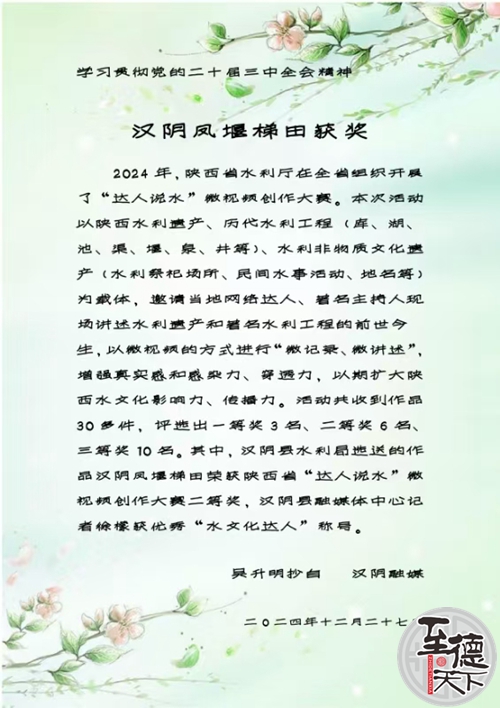 学习贯彻党的二十届三中全会精神
汉阴凤堰梯田获奖
2024年，陕西省水利厅在全省组织开展
了“达人说水”微视频创作大赛。本次活动
以陕西水利遗产、历代水利工程（库、湖、
池、渠、堰、泉、井等）、水利非物质文化遗
产（水利祭祀场所、民间水事活动、地名等）
为载体，邀请当地网络达人、著名主持人现
场讲述水利遗产和著名水利工程的前世今
生，以微视频的方式进行“微记录、微讲述”，
增强真实感和感染力、穿透力，以期扩大陕
西水文化影响力、传播力。活动共收到作品
30多件，评选出一等奖3名、二等奖6名、
三等奖10名。其中，汉阴县水利局选送的作
品汉阴凤堰梯田荣获陕西省“达人说水”微
视频创作大赛二等奖，汉阴县融媒体中心记
者徐檬获优秀“水文化达人”称号。
吴升明抄自 汉阴融媒
二〇二四年十二月二十七
至德天下